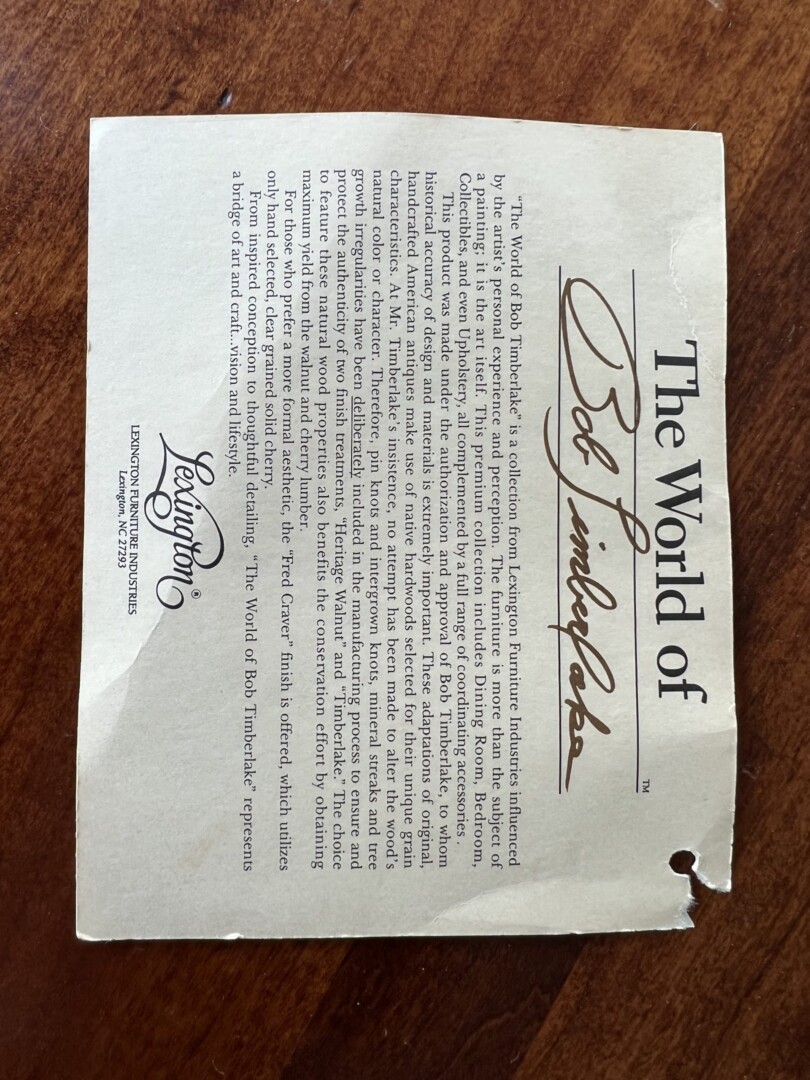 The World of
Bob Timberlake™
"The World of Bob Timberlake" is a collection from Lexington Furniture Industries influenced
by the artist's personal experience and perception. The furniture is more than the subject of
a painting; it is the art itself. This premium collection includes Dining Room, Bedroom,
Collectibles, and even Upholstery, all complemented by a full range of coordinating accessories.
This product was made under the authorization and approval of Bob Timberlake, to whom
historical accuracy of design and materials is extremely important. These adaptations of original,
handcrafted American antiques make use of native hardwoods selected for their unique grain
characteristics. At Mr. Timberlake's insistence, no attempt has been made to alter the wood's
natural color or character. Therefore, pin knots and intergrown knots, mineral streaks and tree
growth irregularities have been deliberately included in the manufacturing process to ensure and
protect the authenticity of two finish treatments, "Heritage Walnut" and "Timberlake." The choice
to feature these natural wood properties also benefits the conservation effort by obtaining
maximum yield from the walnut and cherry lumber.
For those who prefer a more formal aesthetic, the "Fred Craver" finish is offered, which utilizes
only hand selected, clear grained solid cherry.
From inspired conception to thoughtful detailing, "The World of Bob Timberlake" represents
a bridge of art and craft...vision and lifestyle.
Lexington®
LEXINGTON FURNITURE INDUSTRIES
Lexington, NC 27293